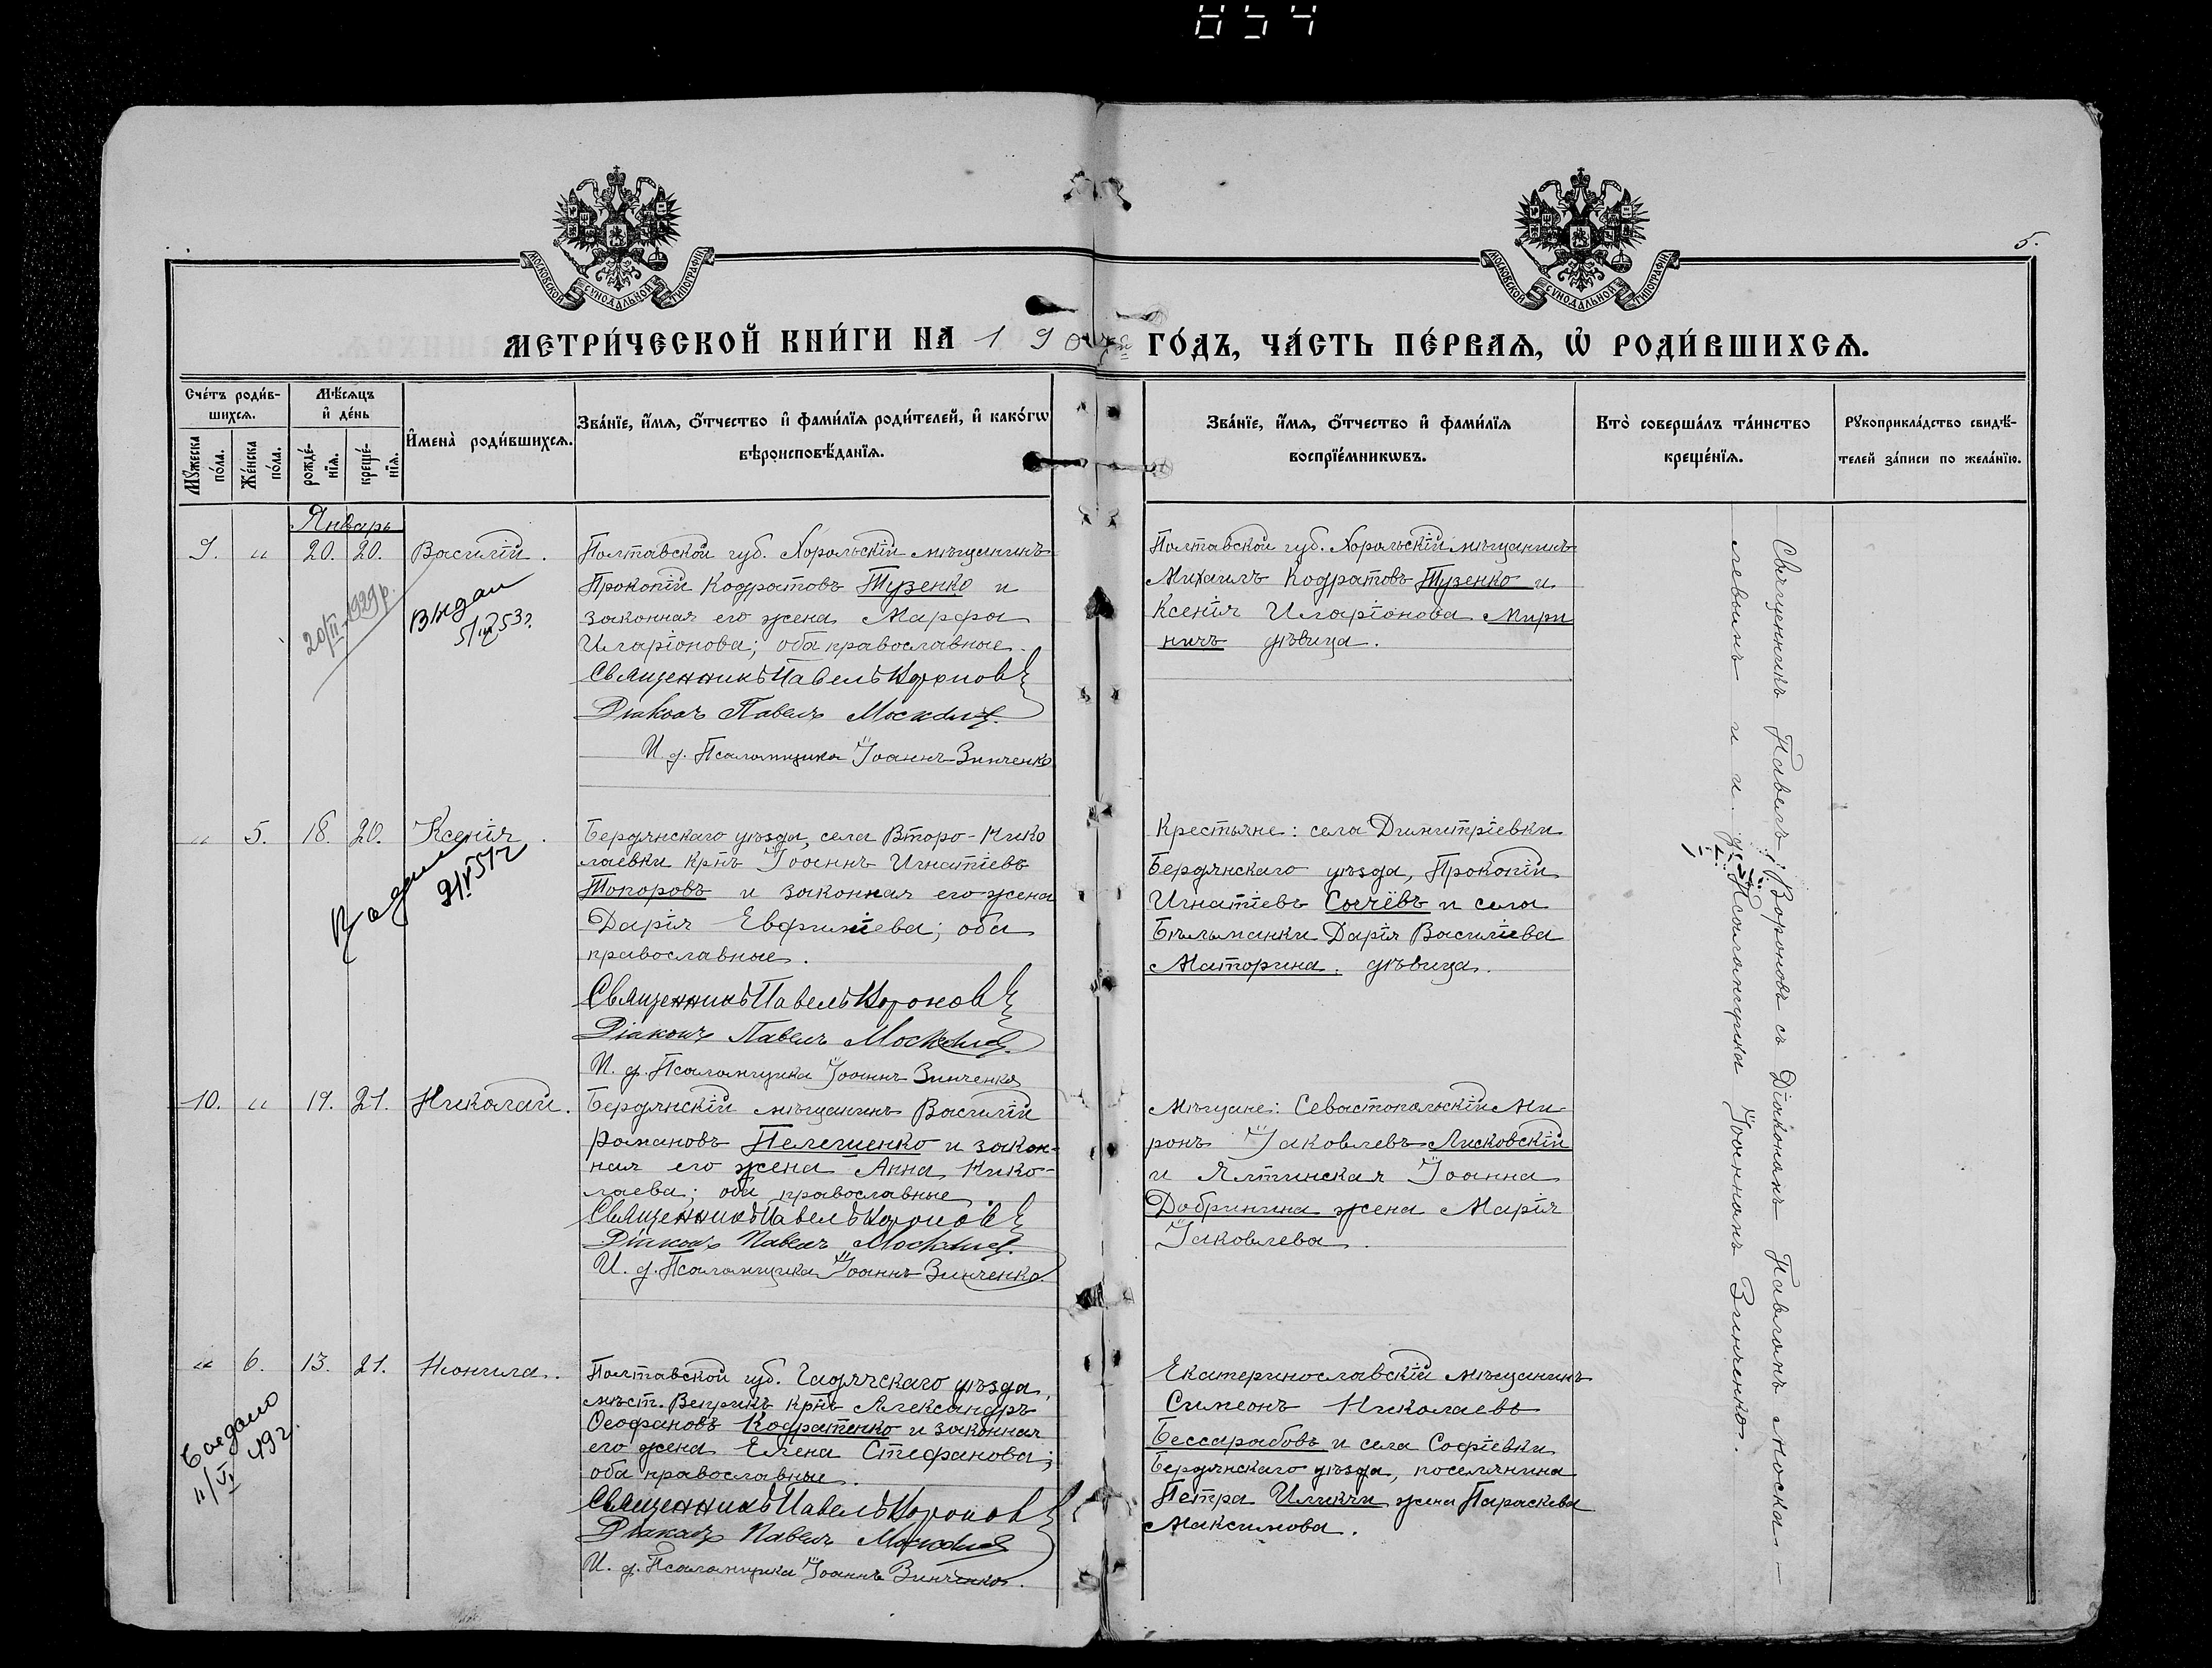 854
5.
МОСКОВСКОЙ СУНОДАЛЬНОЙ ТИПОГРАФІИ
МОСКОВСКОЙ СУНОДАЛЬНОЙ ТИПОГРАФІИ
МЕТРИ́ЧЕСКОЙ КНИ́ГИ НА 190 ГО́ДЪ, ЧА́СТЬ ПЕ́РВАѦ, Ѡ҆ РОДИ́ВШИХСѦ.
Сче́тъ роди́в-
шихсѧ.
Мꙋжеска по́ла.
Же́нска по́ла.
Мѣ́сѧцъ
и҆ де́нь
рожде́-
нїѧ.
креще́-
нїѧ.
И҆мена̀ роди́вшихсѧ.
Зва́нїе, и҆́мѧ, ѻ҆́тчество и҆ фами́лїѧ роди́телей, и҆ како́гѡ
вѣроисповѣ́данїѧ.
Зва́нїе, и҆́мѧ, ѻ҆́тчество и҆ фами́лїѧ
воспрїе́мникѡвъ.
Кто̀ соверша́лъ та́инство
креще́нїѧ.
Рꙋкоприкла́дство свидѣ́-
телей за́писи по жела́нїю.
Январь
9. " 20. 20. Василій.
20/III-1929 р.
Видан
Полтавской губ. Хорольскій мѣщанинъ
Прокопій Кодратовъ Тузенко и
законная его жена Марфа
Иларіонова; оба православные.
Священникъ Павелъ Вороновъ
Діаконъ Павелъ Москалев
И. д. Псаломщика Іоаннъ Зинченко
Полтавской губ. Хорольскій мѣщанинъ
Михаилъ Кодратовъ Тузенко и
Ксенія Иларіонова Мири
ничъ дѣвица.
" 5. 18. 20. Ксенія.
Бердянскаго уѣзда, села Второ-Нико
лаевки крнъ Іоаннъ Игнатіевъ
Топоровъ и законная его жена
Дарія Евфиміева; оба
православные.
Священникъ Павелъ Вороновъ
Діаконъ Павелъ Москалев
И. д. Псаломщика Іоаннъ Зинченко
Крестьяне: села Димитріевки
Бердянскаго уѣзда, Прокопій
Игнатіевъ Сычёвъ и села
Бѣльманки Дарія Василіева
Маторина. дѣвица.
10. " 19. 21. Николай.
Бердянскій мѣщанинъ Василій
Романовъ Пелешенко и закон-
ная его жена Анна Нико-
лаева; оба православные.
Священникъ Павелъ Вороновъ
Діаконъ Павелъ Москалев
И. д. Псаломщика Іоаннъ Зинченко
Мѣщане: Севастопольскій Ми-
ронъ Іаковлевъ Лисковскій
и Ялтинская Іоанна
Добринина жена Марія
Іаковлева.
" 6. 13. 21. Неонила.
Полтавской губ. Гадячскаго уѣзда,
мѣст. Веприкъ крнъ Александръ
Ѳеофановъ Кодратенко и законная
его жена Елена Стефанова;
оба православные.
Священникъ Павелъ Вороновъ
Діаконъ Павелъ Москалев
И. д. Псаломщика Іоаннъ Зинченко.
Екатеринославскій мѣщанинъ
Симеонъ Николаевъ
Бессарабовъ и села Софіевки
Бердянскаго уѣзда, поселянина
Петра Иликчи жена Параскева
Максимова.
Священникъ Павелъ Вороновъ съ Діакономъ Павломъ Моска-
левымъ и и. д. Псаломщика Іоанномъ Зинченко.